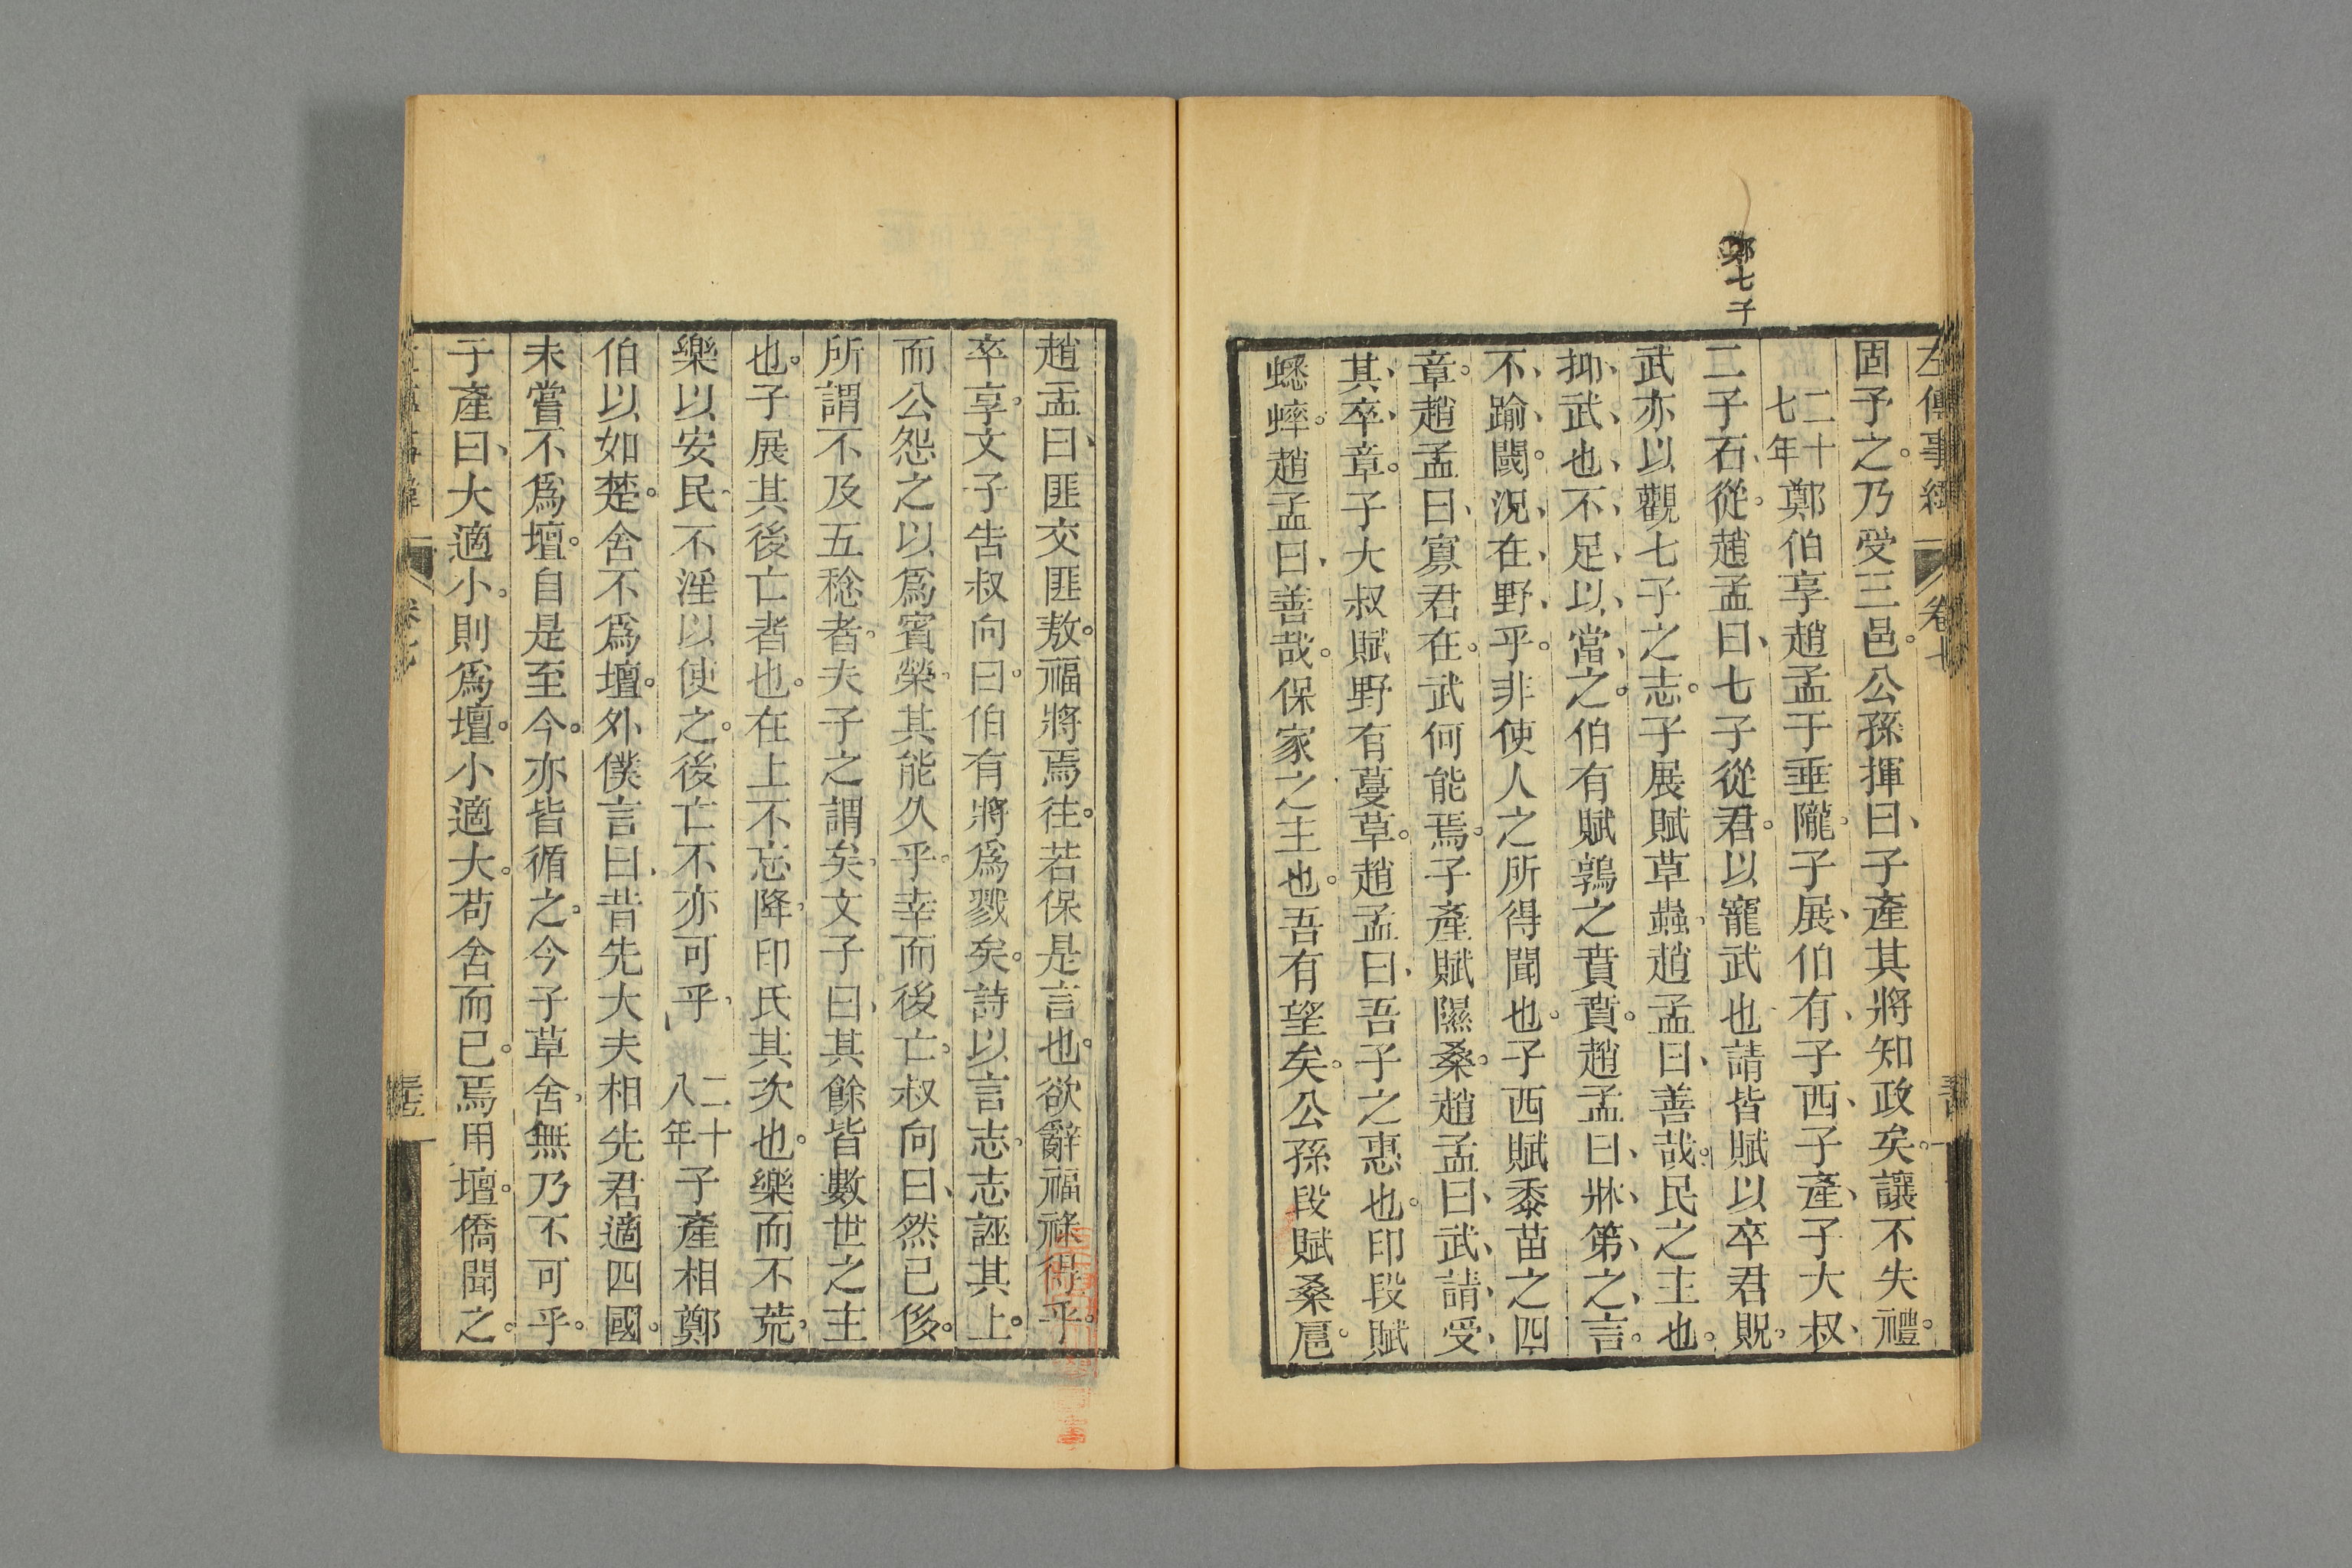 左傳事緯 卷七
鄭七子
固予之。乃受三邑。公孫揮曰、子產其將知政矣。讓不失禮。
二十七年鄭伯享趙孟于垂隴。子展、伯有、子西、子產、子大叔、
二子石從。趙孟曰、七子從君。以寵武也請皆賦以卒君貺。
武亦以觀七子之志。子展賦草蟲。趙孟曰、善哉。民之主也。
抑、武、也、不、足、以、當、之。伯有賦鶉之賁賁。趙孟曰、牀、第、之、言。
不、踰、閾。況、在、野、乎。非使人之所得聞也。子西賦黍苗之四
章。趙孟曰、寡君在。武何能焉。子產賦隰桑。趙孟曰、武、請、受、
其、卒、章。子大叔賦野有蔓草。趙孟曰、吾子之惠也。印段賦
蟋蟀。趙孟曰、善哉。保家之主也。吾有望矣。公孫段賦桑扈。
趙孟曰、匪交匪敖。福將焉往。若保是言也。欲辭福祿得乎。
卒享。文子告叔向曰。伯有將爲戮矣。詩以言志。志誣其上。
而公怨之以爲賓榮。其能久乎。幸而後亡。叔向曰、然已侈。
所謂不及五稔者。夫子之謂矣。文子曰、其餘皆數世之主
也。子展其後亡者也。在上不忘降。印氏其次也。樂而不荒。
樂以安民。不淫以使之。後亡不亦可乎。 二十八年子產相鄭
伯以如楚。舍不爲壇。外僕言曰、昔先大夫相先君適四國。
未嘗不爲壇。自是至今。亦皆循之。今子草舍。無乃不可乎。
子產曰、大適小。則爲壇。小適大。苟舍而已。焉用壇。僑聞之。